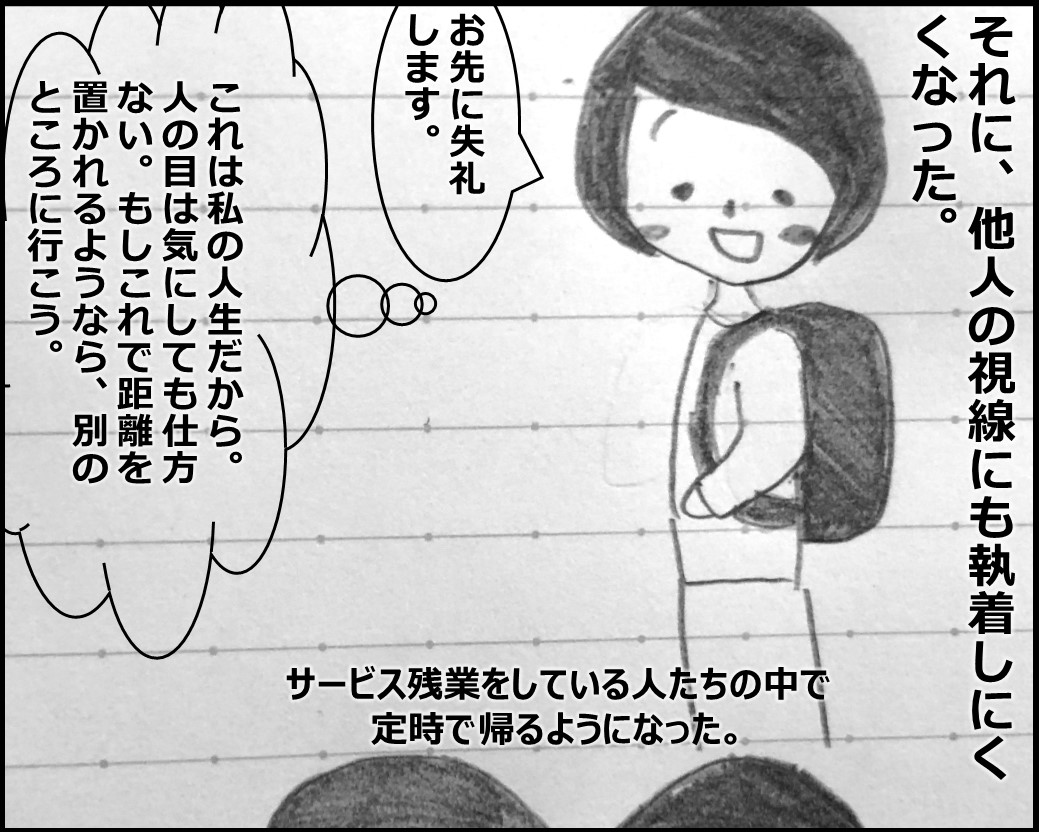 それに、他人の視線にも執着しにく
くなった。
お先に失礼
します。
これは私の人生だから。
人の目は気にしても仕方
ない。もしこれで距離を
置かれるようなら、別の
ところに行こう。
サービス残業をしている人たちの中で
定時で帰るようになった。